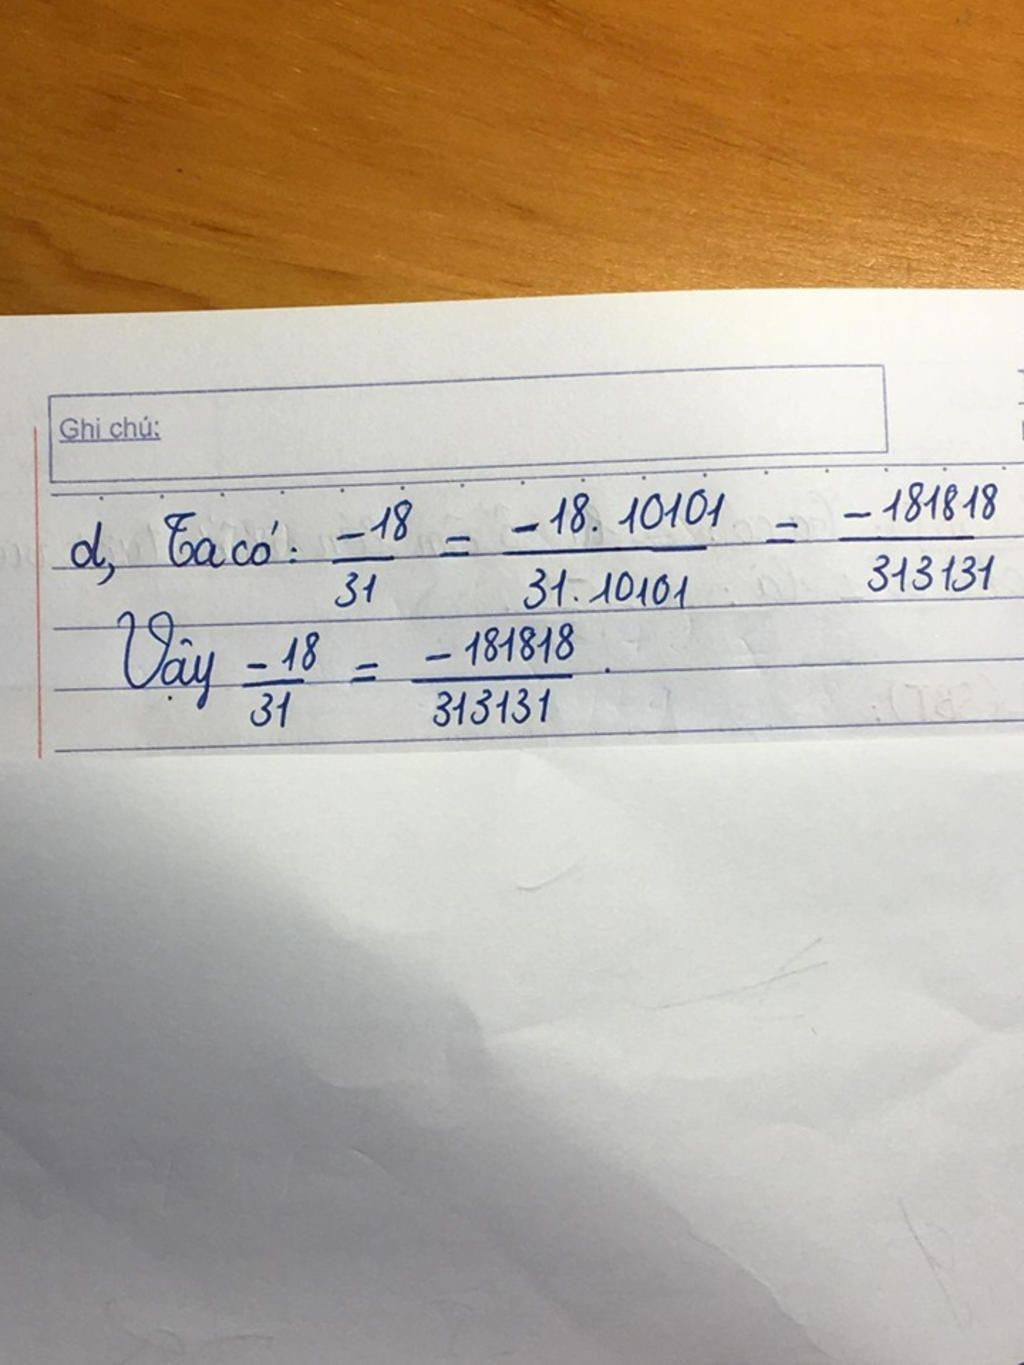 Ghi chú:
d, Ta có: -18/31 = -18.10101/31.10101 = -181818/313131
Vậy -18/31 = -181818/313131.